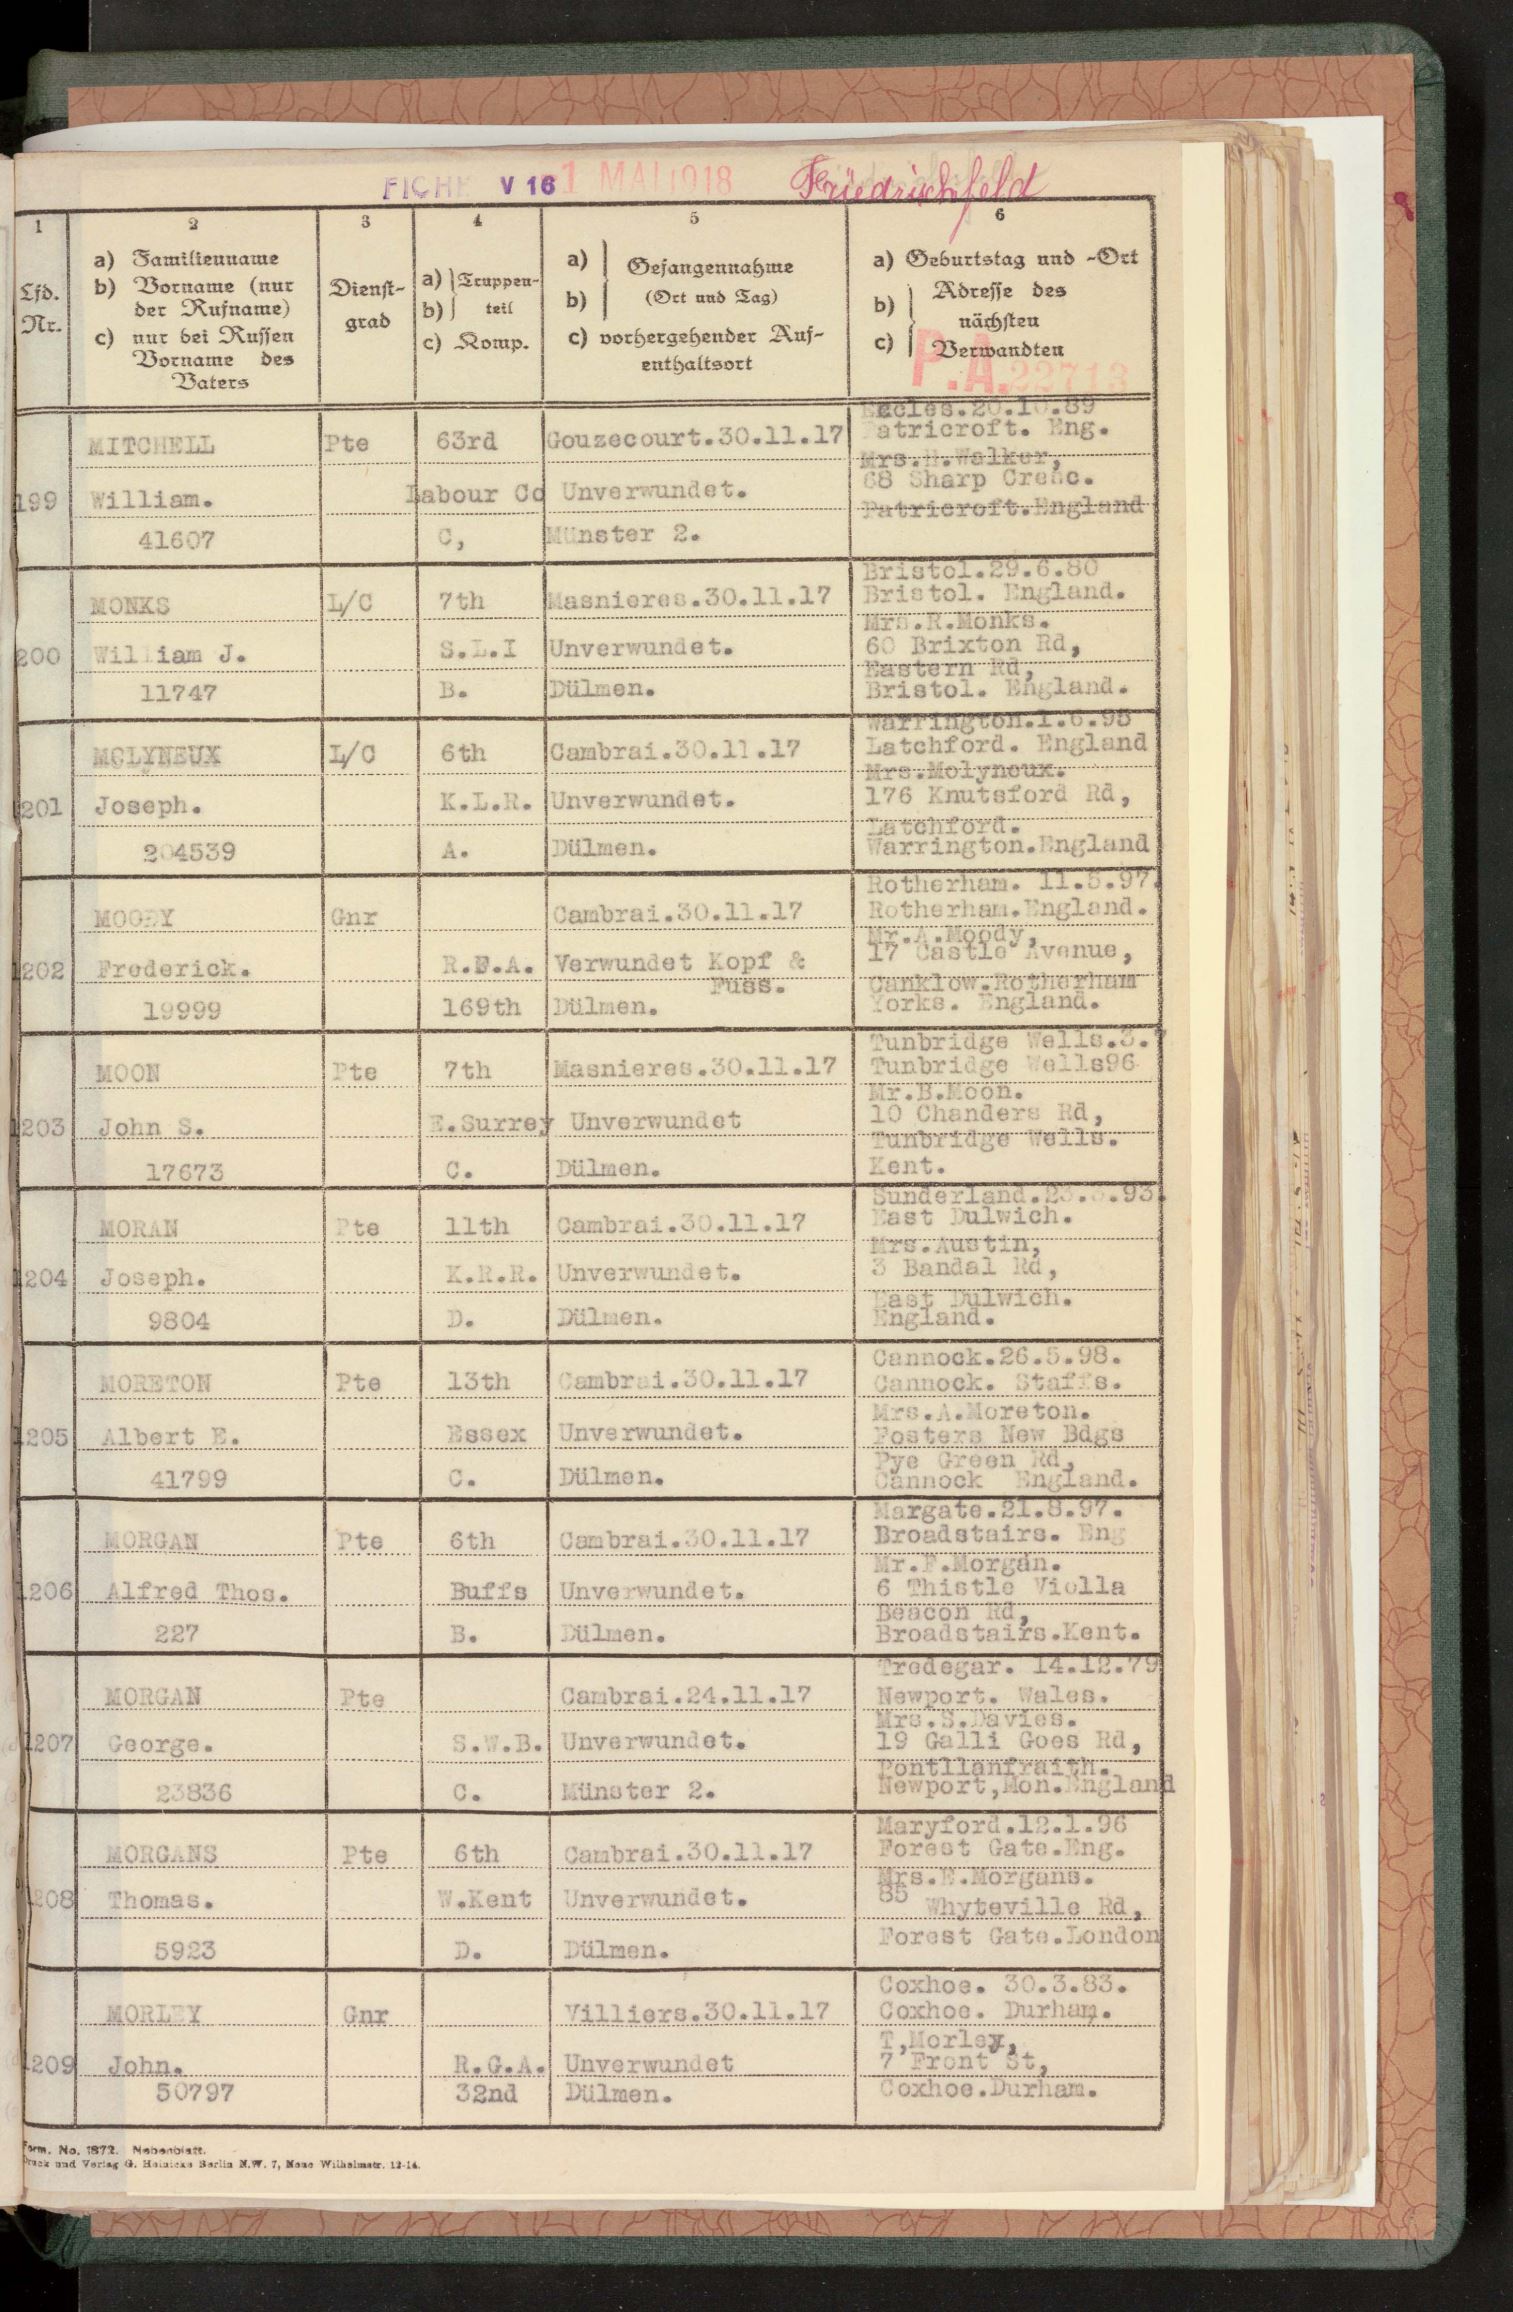 FICHE V 16 1 MAI 1918 Friedrichsfeld
1 2 3 4 5 6
Lfd. Nr.
a) Familienname
b) Vorname (nur
der Rufname)
c) nur bei Russen
Vorname des
Vaters
Dienst-
grad
a) Truppen-
b) teil
c) Komp.
a) Gefangennahme
b) (Ort und Tag)
c) vorhergehender Auf-
enthaltsort
a) Geburtstag und -Ort
b) Adresse des
nächsten
c) Verwandten
P.A. 22713
Eccles.20.10.89
MITCHELL Pte 63rd Gouzecourt.30.11.17 Patricroft. Eng.
Mrs.H.Walker,
199 William. Labour Co Unverwundet. 68 Sharp Cresc.
Patricroft.England
41607 C, Münster 2.
Bristol.29.6.80
MONKS L/C 7th Masnieres.30.11.17 Bristol. England.
Mrs.R.Monks.
200 William J. S.L.I Unverwundet. 60 Brixton Rd,
Eastern Rd,
11747 B. Dülmen. Bristol. England.
Warrington.1.6.95
MOLYNEUX L/C 6th Cambrai.30.11.17 Latchford. England
Mrs.Molyneux.
201 Joseph. K.L.R. Unverwundet. 176 Knutsford Rd,
Latchford.
204539 A. Dülmen. Warrington.England
Rotherham. 11.5.97.
MOODY Gnr Cambrai.30.11.17 Rotherham.England.
Mr.A.Moody,
1202 Frederick. R.F.A. Verwundet Kopf & 17 Castle Avenue,
Fuss. Canklow.Rotherham
19999 169th Dülmen. Yorks. England.
Tunbridge Wells.3.7
MOON Pte 7th Masnieres.30.11.17 Tunbridge Wells96
Mr.B.Moon.
1203 John S. E.Surrey Unverwundet 10 Chanders Rd,
Tunbridge Wells.
17673 C. Dülmen. Kent.
Sunderland.
MORAN Pte 11th Cambrai.30.11.17 East Dulwich.
Mrs.Austin,
1204 Joseph. K.R.R. Unverwundet. 3 Bandal Rd,
East Dulwich.
9804 D. Dülmen. England.
Cannock.26.5.98.
MORETON Pte 13th Cambrai.30.11.17 Cannock. Staffs.
Mrs.A.Moreton.
1205 Albert E. Essex Unverwundet. Fosters New Bdgs
Pye Green Rd,
41799 C. Dülmen. Cannock England.
Margate.21.8.97.
MORGAN Pte 6th Cambrai.30.11.17 Broadstairs. Eng
Mr.F.Morgan.
1206 Alfred Thos. Buffs Unverwundet. 6 Thistle Violla
Beacon Rd,
227 B. Dülmen. Broadstairs.Kent.
Tredegar. 14.12.79
MORGAN Pte Cambrai.24.11.17 Newport. Wales.
Mrs.S.Davies.
1207 George. S.W.B. Unverwundet. 19 Galli Goes Rd,
Pontllanfraith.
23836 C. Münster 2. Newport,Mon.England
Maryford.12.1.96
MORGANS Pte 6th Cambrai.30.11.17 Forest Gate.Eng.
Mrs.E.Morgans.
208 Thomas. W.Kent Unverwundet. 85 Whyteville Rd,
5923 D. Dülmen. Forest Gate.London
Coxhoe. 30.3.83.
MORLEY Gnr Villiers.30.11.17 Coxhoe. Durham.
T,Morley,
1209 John. R.G.A. Unverwundet 7 Front St,
50797 32nd Dülmen. Coxhoe.Durham.
Form. No. 1872. Nebenblatt.
Druck und Verlag G. Heinicke Berlin N.W. 7, Neue Wilhelmstr. 12-14.